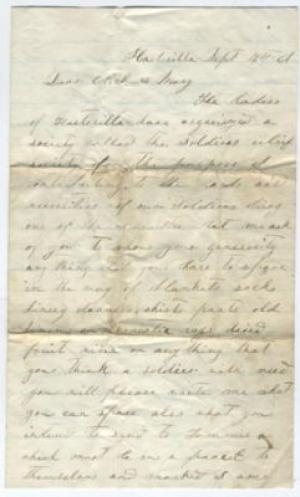 Sept 12th 61
Dear Dick & Mary
The Ladies
of Huntsville have organized a
society called the Soldiers relief
society for the purpose of
contributing to the wants and
necessities of our soldiers this
one of the let me ask
of you to show your generosity
any thing that you have to spare
in the way of blankets socks
linsey drawers shirts pants old
linen or domestic rags dried
fruit wine or any thing that
you think a soldier will need
you will please write me what
you can spare also what you
intend to send to
which must be in a packet to
themselves and marked & any